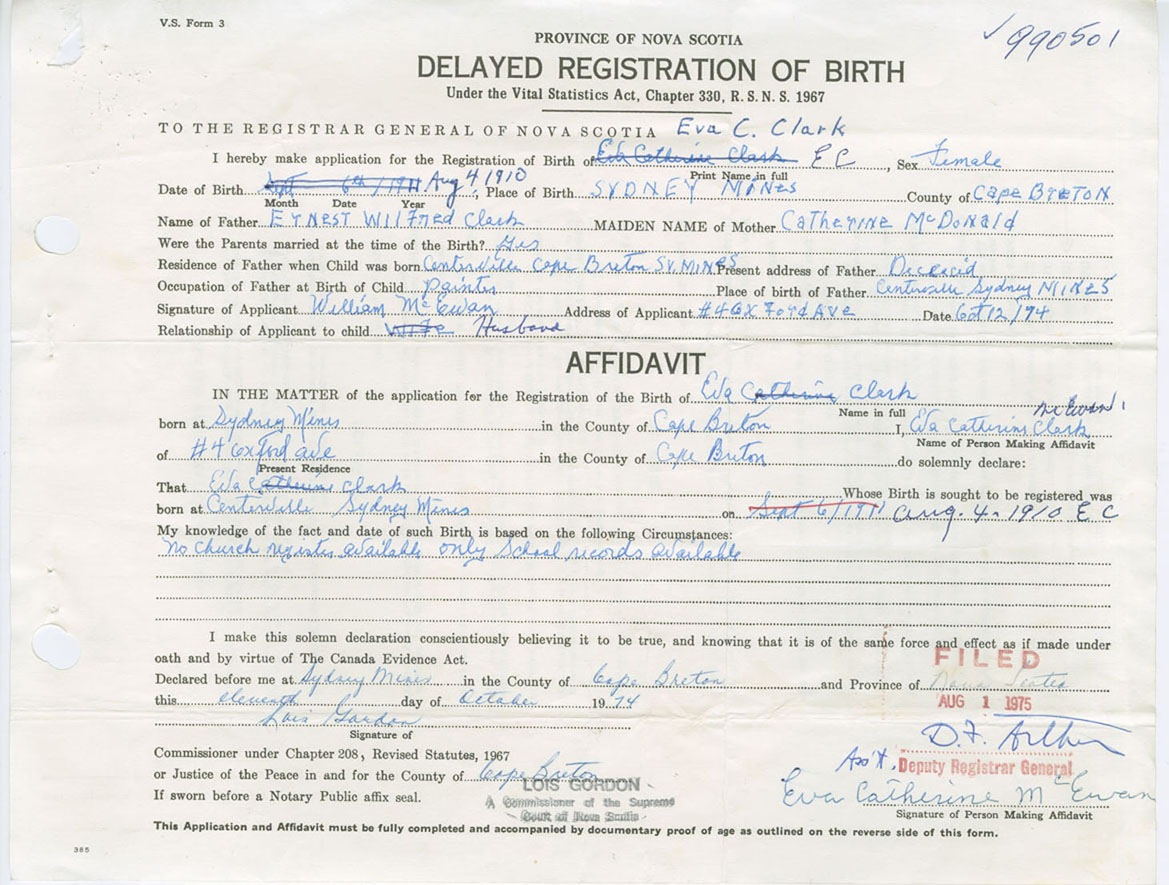 V.S. Form 3
√ 990501
PROVINCE OF NOVA SCOTIA
DELAYED REGISTRATION OF BIRTH
Under the Vital Statistics Act, Chapter 330, R.S.N.S. 1967
TO THE REGISTRAR GENERAL OF NOVA SCOTIA Eva C. Clark
I hereby make application for the Registration of Birth of Eva Catherine Clark E C, Sex Female
Print Name in full
Date of Birth Sept 6th/1911 Aug 4 1910, Place of Birth SYDNEY MINES County of Cape BreTON
Month Date Year
Name of Father ErNEST WILFred Clark MAIDEN NAME of Mother CATHERINE McDonald
Were the Parents married at the time of the Birth? Yes
Residence of Father when Child was born Centerville Cape Breton SY. MINES Present address of Father Dececid
Occupation of Father at Birth of Child painter Place of birth of Father Centerville Sydney MINES
Signature of Applicant William McEwan Address of Applicant #4 OXFord Ave Date Oct 12/74
Relationship of Applicant to child wife Husband
AFFIDAVIT
IN THE MATTER of the application for the Registration of the Birth of Eva Catherine Clark
Name in full
McEwan
born at Sydney Mines in the County of Cape Breton I, Eva Catherine Clark
Name of Person Making Affidavit
of #4 Oxford ave in the County of Cape Breton do solemnly declare:
Present Residence
That Eva Catherine Clark Whose Birth is sought to be registered was
born at Centerville Sydney Mines on Sept 6/1911 Aug. 4. 1910 E C
My knowledge of the fact and date of such Birth is based on the following Circumstances:
No church register available only School records available
I make this solemn declaration conscientiously believing it to be true, and knowing that it is of the same force and effect as if made under
oath and by virtue of The Canada Evidence Act.
FILED
Declared before me at Sydney Mines in the County of Cape Breton and Province of Nova Scotia
this eleventh day of October 1974
AUG 1 1975
Lois Gordon
Signature of
D.F. Arthur
Commissioner under Chapter 208, Revised Statutes, 1967
Ass't. Deputy Registrar General
or Justice of the Peace in and for the County of Cape Breton
LOIS GORDON
If sworn before a Notary Public affix seal.
A Commissioner of the Supreme
Court of Nova Scotia
Eva Catherine McEwan
Signature of Person Making Affidavit
This Application and Affidavit must be fully completed and accompanied by documentary proof of age as outlined on the reverse side of this form.
385